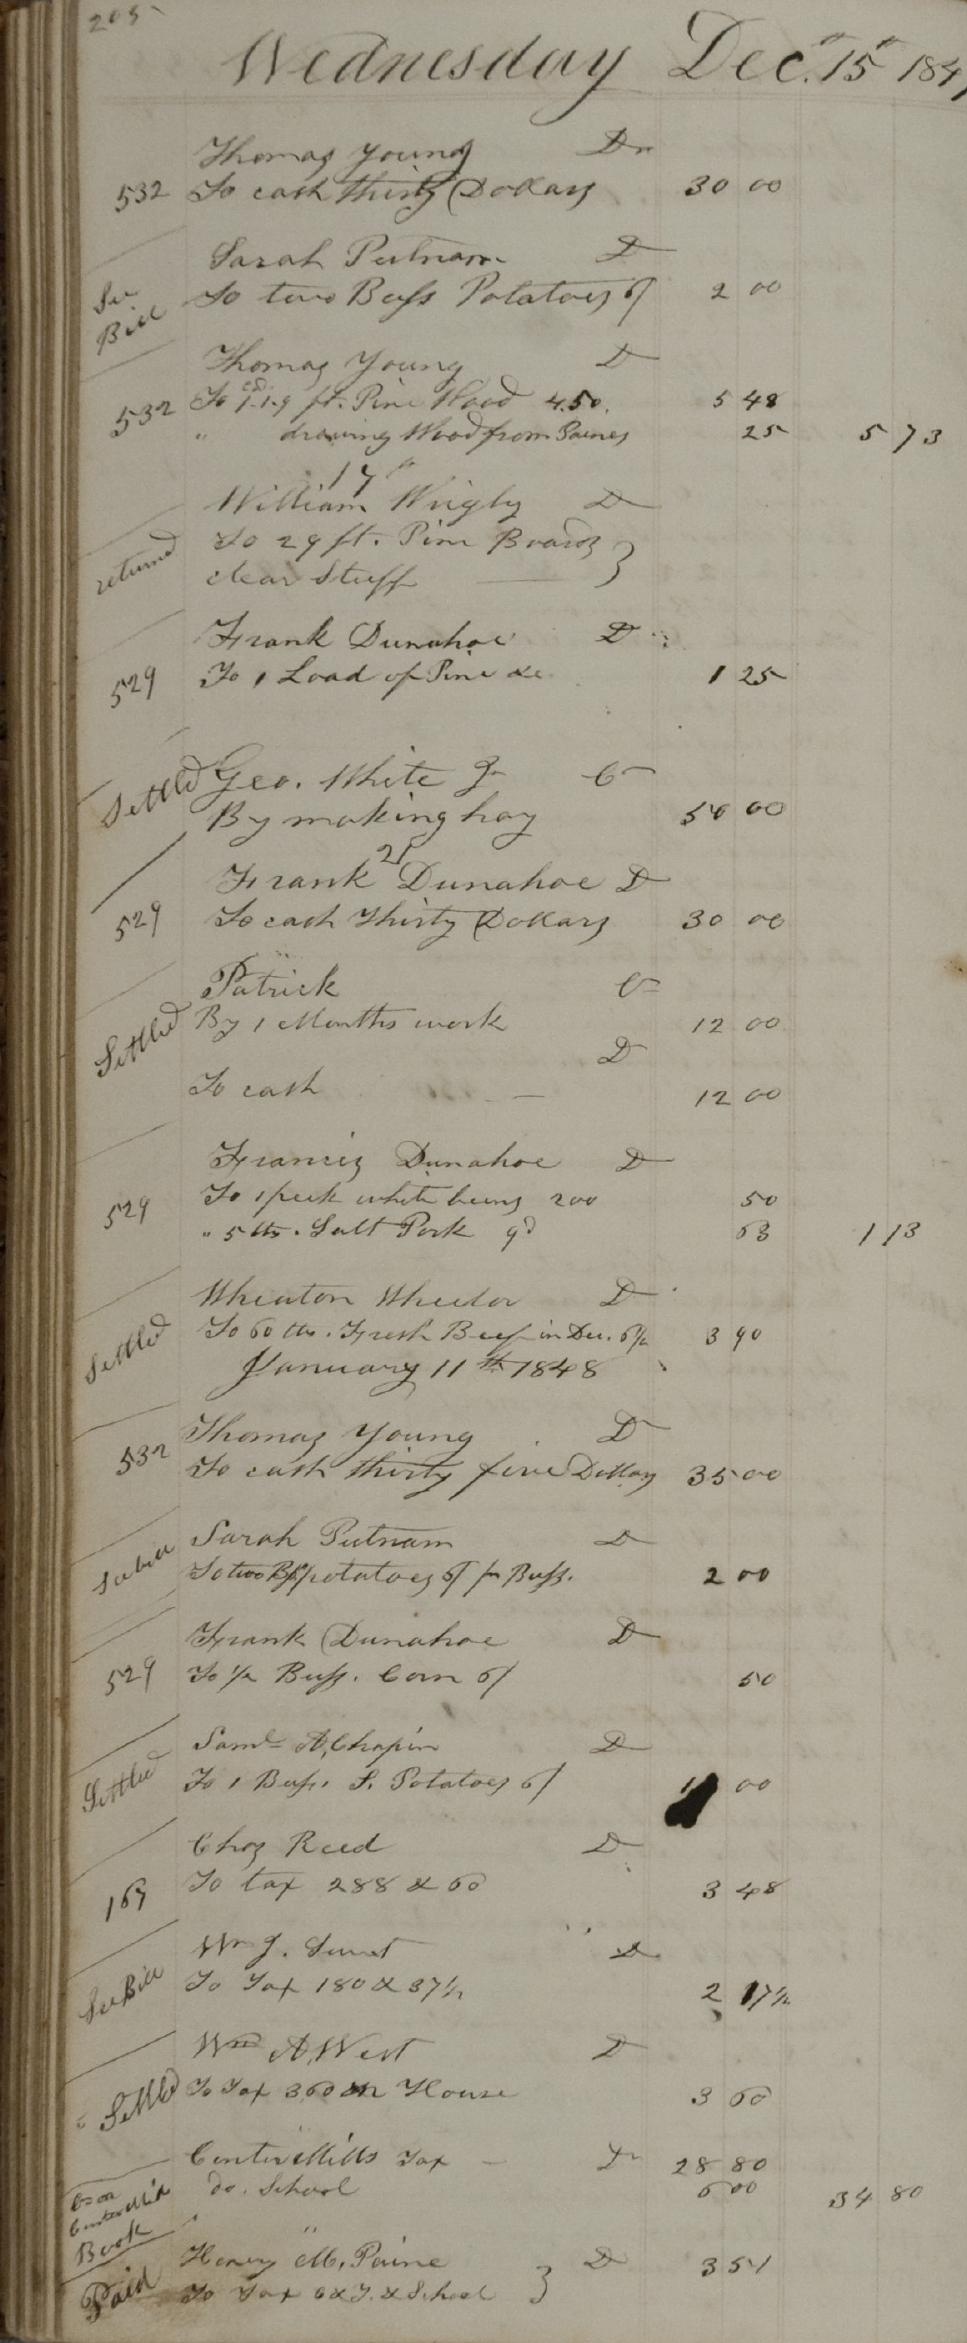 205
Wednesday Dec. 15 184
Thomas Young Dr
532 To cash thirty Dollars 30 00
Sarah Putnam D
See Bill To two Bufs Potatoes 6/ 2 00
Thomas Young D
532 To 1-1-9 ft. Pine Wood 4.50. 5 48
" drawing Wood from Paines 25 5 73
17
William Wrigly D
returned To 29 ft. Pine Boards
clear Stuff
Frank Dunahoe D
529 To 1 Load of Pine &c 1 25
Settled Geo. White Jr C
By making hay 50 00
21
Frank Dunahoe D
529 To cash Thirty Dollars 30 00
Patrick C
Settled By 1 Months work 12 00
D
To cash 12 00
Francis Dunahoe D
529 To 1 peck white beens 200 50
" 5 lbs. Salt Pork 9d 63 1 13
Wheaton Wheelor D
Settled To 60 lbs. Fresh Beef in Dec. 6½ 3 90
January 11th 1848
Thomas Young D
532 To cash thirty five Dollars 35 00
Sarah Putnam D
See bill To two Bufs potatoes 6/ pr Bufs. 2 00
Frank Dunahoe D
529 To ½ Bufs. Corn 6/ 50
Saml A. Chapin D
Settled To 1 Bufs. S. Potatoes 6/ 1 00
Chas Reed D
167 To tax 288 & 60 3 48
Wm J. D
See Bill To Tax 180 & 37½ 2 17½
Wm A. West D
Settled To Tax 360 on House 3 60
Centre Mills Tax - Dr 28 80
do. School 6 00 34 80
on Centre Mill Book
Henry M. Paine D 3 51
Paid To Tax & School